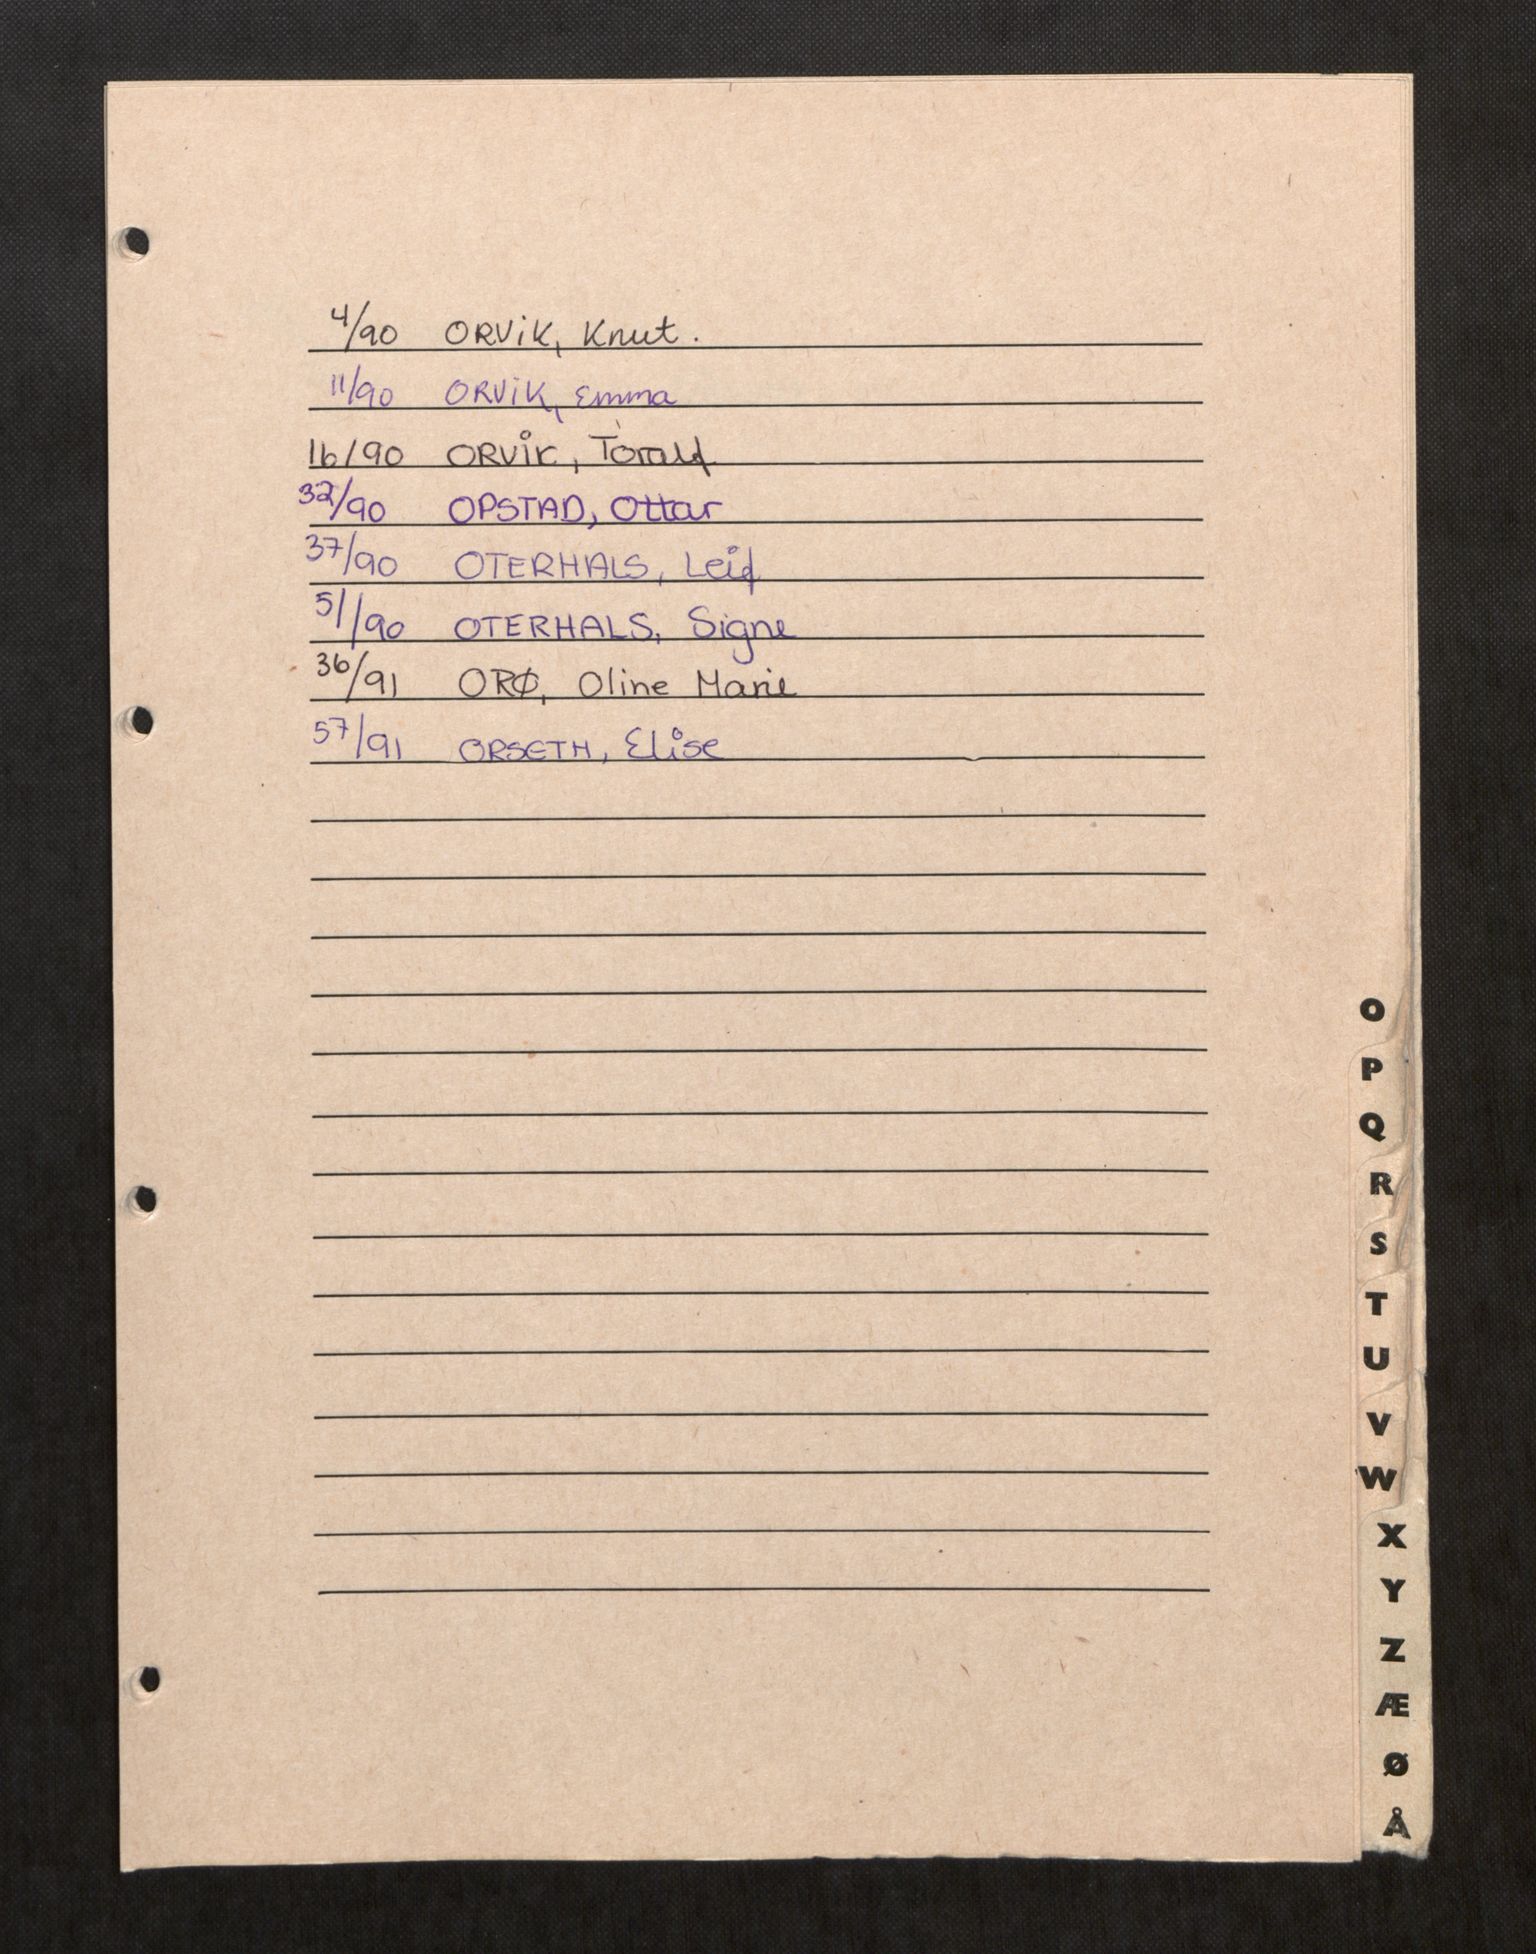 4/90 ORViK, Knut.
11/90 ORViK, Emma
16/90 ORViK, Torald
32/90 OPSTAD, Ottar
37/90 OTERHALS, Leif
51/90 OTERHALS, Signe
36/91 ORØ, Oline Marie
57/91 ORSETH, Elise
O
P
Q
R
S
T
U
V
W
X
Y
Z
Æ
Ø
Å